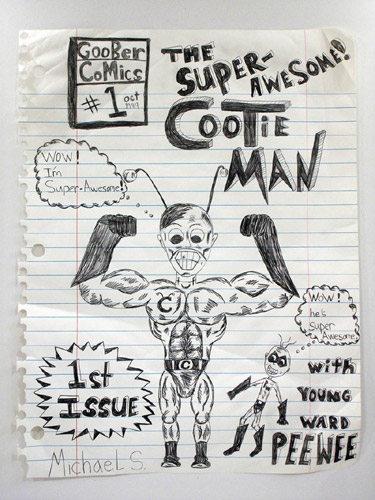 GooBer
CoMics
#1 oct
1999
THE
SUPER-
AWESOME!
CooTie
MAN
Wow!
I'm
Super-Awesome!
C
C
Wow!
he's
super
Awesome
1st
ISSUE
with
YOUNG
WARD
PEEWEE
Michael S.